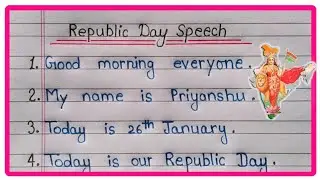 Republic Day Speech
1. Good morning everyone.
2. My name is Priyanshu.
3. Today is 26th January.
4. Today is our Republic Day.